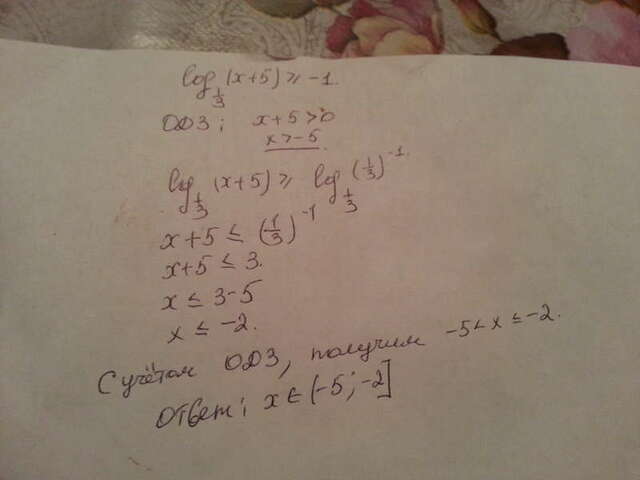 log_{1/3} (x+5) ≥ -1.
ОДЗ: x+5>0
x>-5.
log_{1/3} (x+5) ≥ log_{1/3} (1/3)^{-1}.
x+5 ≤ (1/3)^{-1}
x+5 ≤ 3.
x ≤ 3-5
x ≤ -2.
С учётом ОДЗ, получим -5<x≤-2.
Ответ: x ∈ (-5; -2]